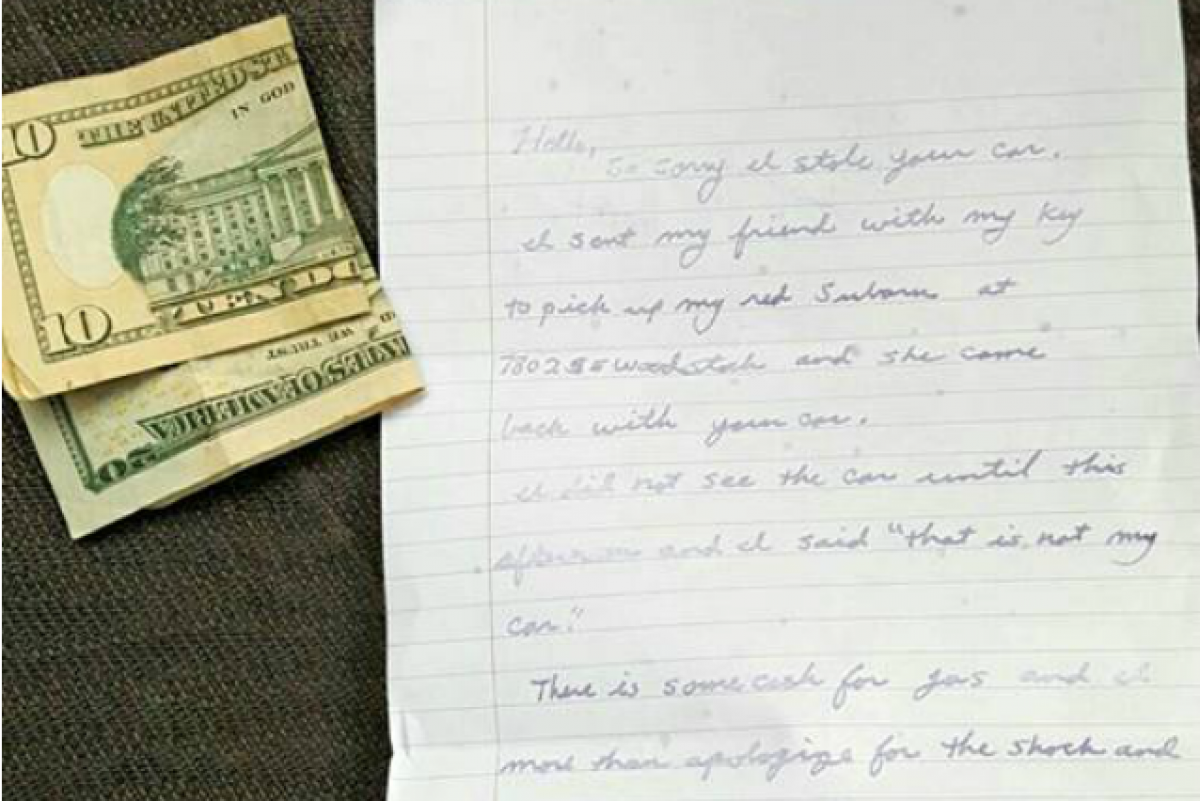 10
THE UNITED ST
IN GOD
10
WE TRUST
TATES OF AMERICA
20
Hello,
So sorry I stole your car.
I sent my friend with my key
to pick up my red Subaru at
7802 SE Woodstock and she came
back with your car.
I did not see the car until this
afternoon and I said "that is not my
car."
There is some cash for gas and I
more than apologize for the shock and